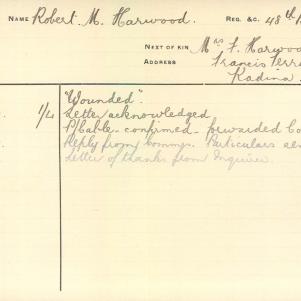 NAME Robert M. Harwood. REG. &C. 48th
NEXT OF KIN Mrs F. Harwood
ADDRESS Francis Terr
Kadina
"Wounded".
1/4 Letter acknowledged
P/Cable - confirmed - forwarded
Reply from Commrs. Particulars
Letter of thanks from Inquirer.